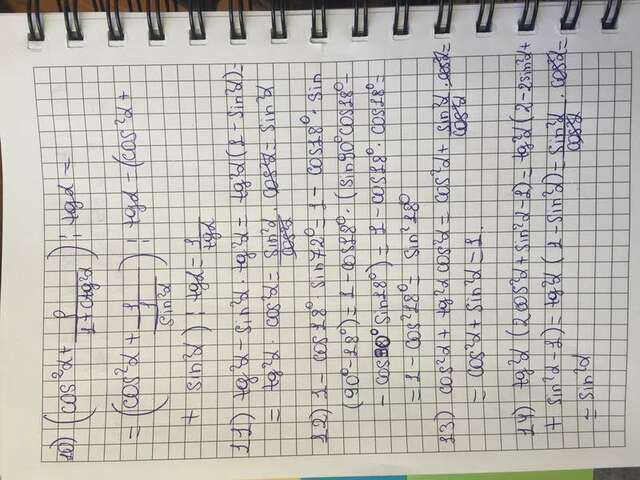 10) (cos²α + 1/(1+ctg²α)) : tgα =
= (cos²α + 1/(1/sin²α)) : tgα = (cos²α +
+ sin²α) : tgα = 1/tgα
11) tg²α - sin²α · tg²α = tg²α(1 - sin²α) =
= tg²α · cos²α = sin²α/cos²α · cos²α = sin²α
12) 1 - cos18° · sin72° = 1 - cos18° · sin
(90° - 18°) = 1 - cos18° · (sin90° cos18° -
- cos90° sin18°) = 1 - cos18° · cos18° =
= 1 - cos²18° = sin²18°
13) cos²α + tg²α cos²α = cos²α + sin²α/cos²α · cos²α =
= cos²α + sin²α = 1.
14) tg²α (2cos²α + sin²α - 1) = tg²α (2 - 2sin²α +
+ sin²α - 1) = tg²α (1 - sin²α) = sin²α/cos²α · cos²α =
= sin²α